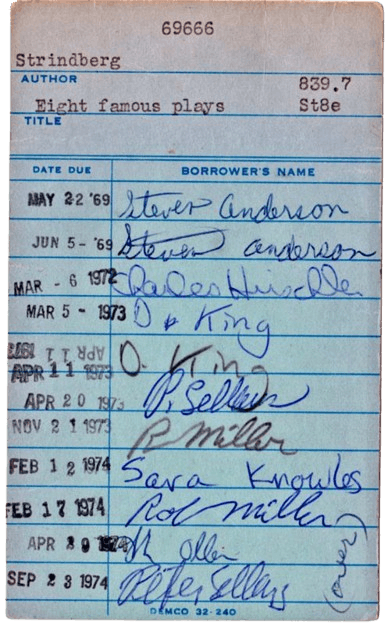 69666
Strindberg
AUTHOR 839.7
Eight famous plays St8e
TITLE
DATE DUE BORROWER'S NAME
MAY 22 '69 Steven Anderson
JUN 5 - '69 Steven Anderson
MAR - 6 1972 Charles
MAR 5 - 1973 D. King
APR 11 1973
APR 11 1973 D. King
APR 20 1973 P. Sellars
NOV 21 1973 R Miller
FEB 12 1974 Sara Knowles
FEB 17 1974 Rob Miller
APR 1974
SEP 23 1974 Peter Sellars
(over)
DEMCO 32-240